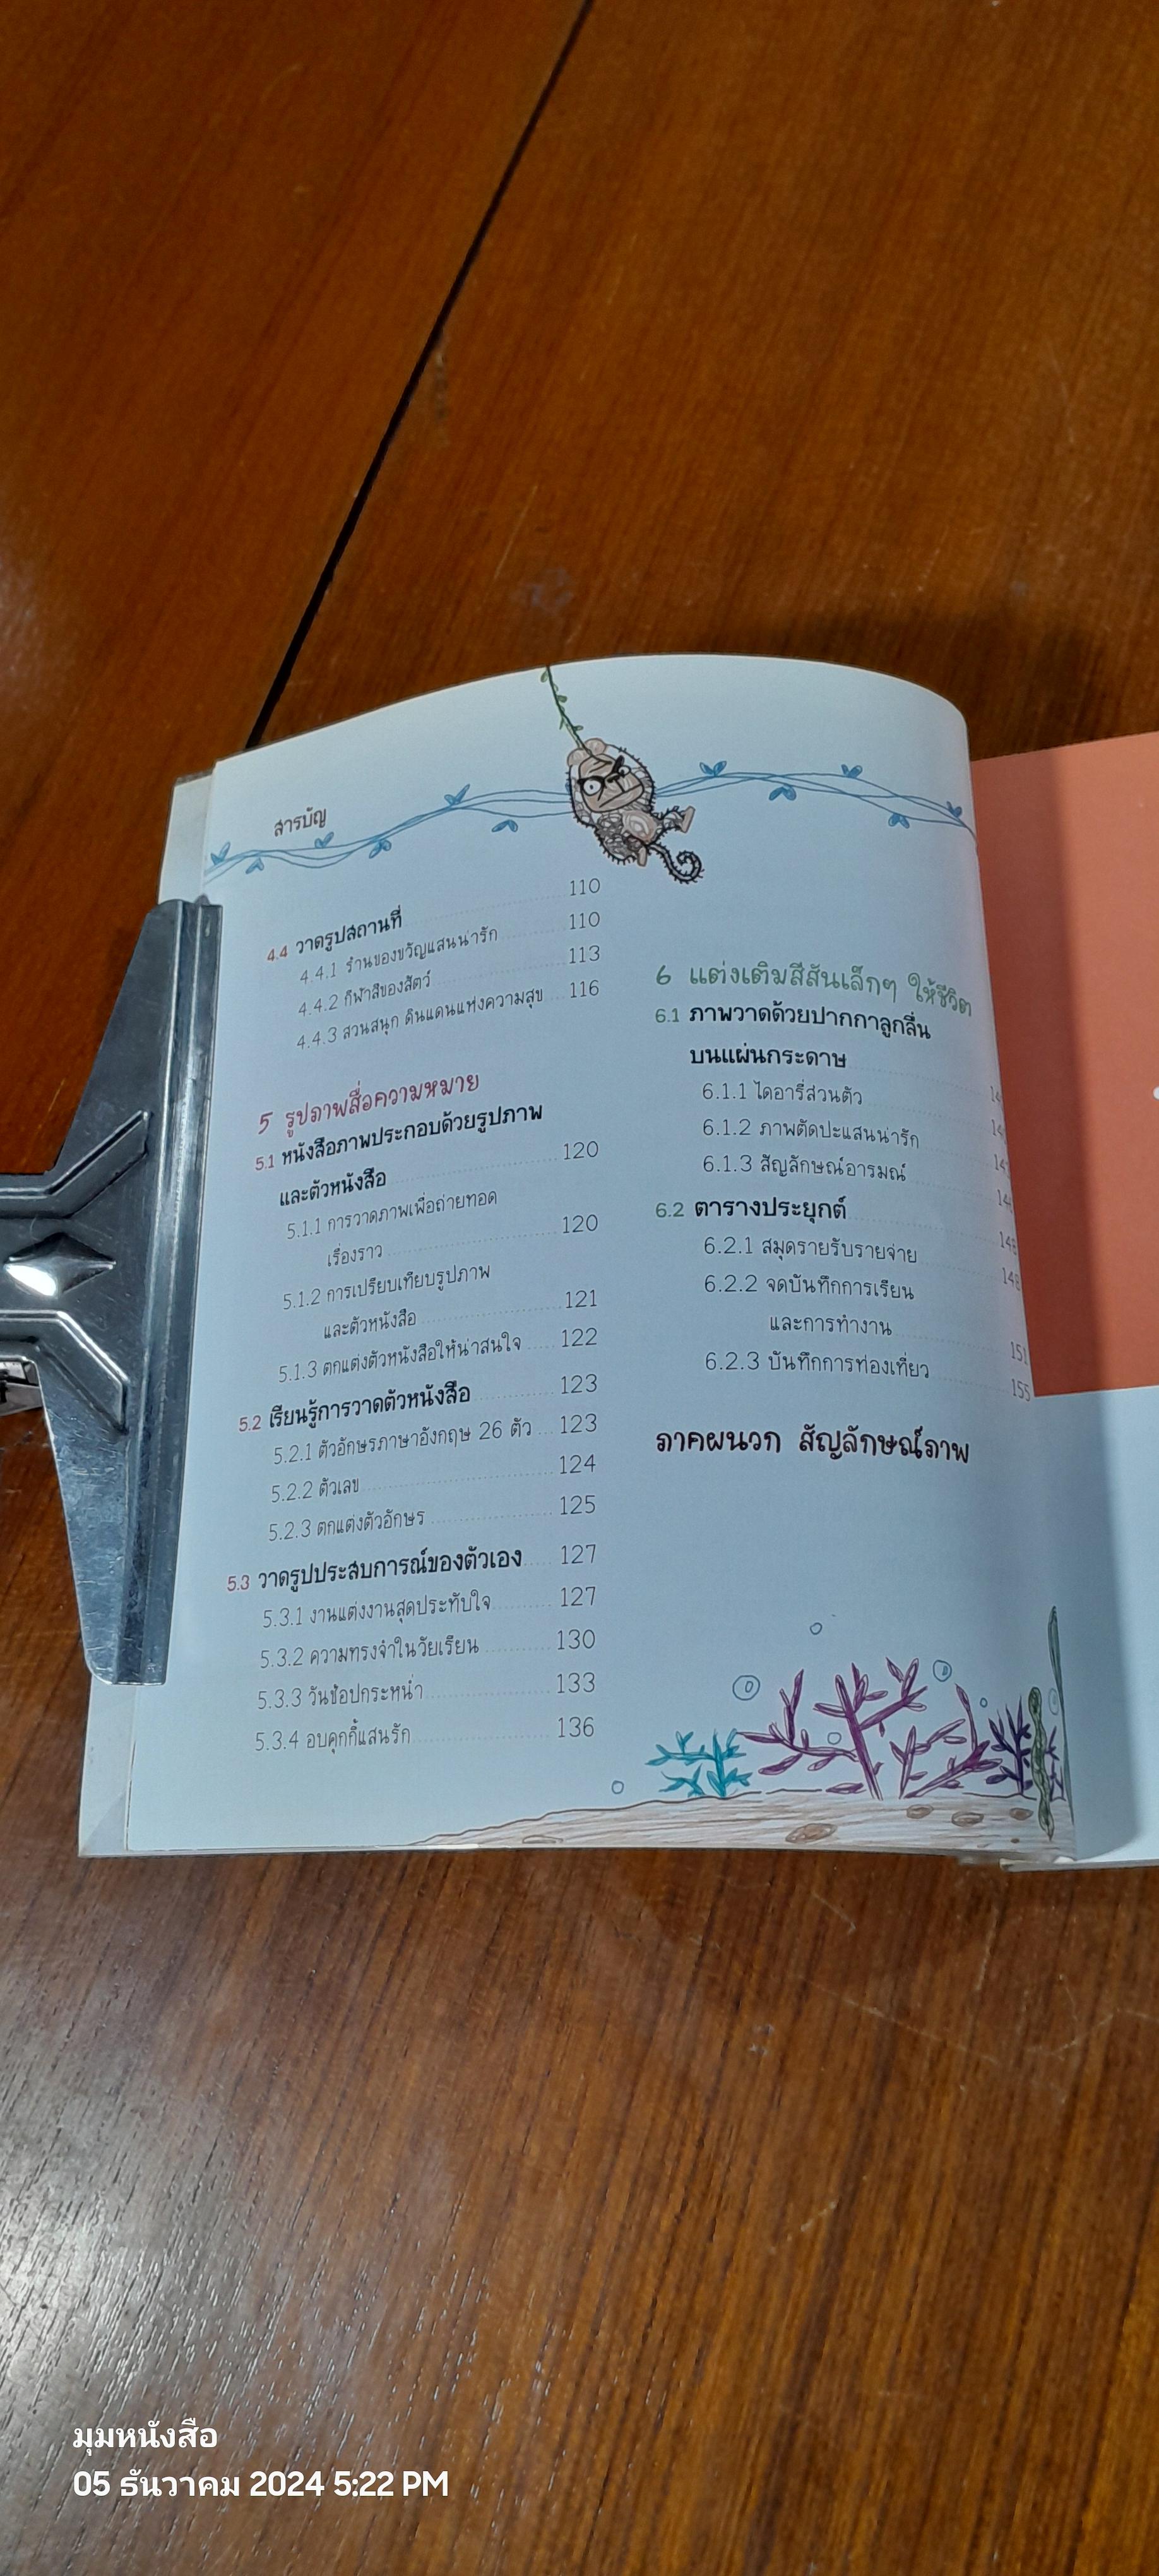 สารบัญ
4.4 วาดรูปสถานที่ 110
4.4.1 ร้านของขวัญแสนน่ารัก 110
4.4.2 กีฬาสีของสัตว์ 113
4.4.3 สวนสนุก ดินแดนแห่งความสุข 116
5 รูปภาพสื่อความหมาย
5.1 หนังสือภาพประกอบด้วยรูปภาพ
และตัวหนังสือ 120
5.1.1 การวาดภาพเพื่อถ่ายทอด
เรื่องราว 120
5.1.2 การเปรียบเทียบรูปภาพ
และตัวหนังสือ 121
5.1.3 ตกแต่งตัวหนังสือให้น่าสนใจ 122
5.2 เรียนรู้การวาดตัวหนังสือ 123
5.2.1 ตัวอักษรภาษาอังกฤษ 26 ตัว 123
5.2.2 ตัวเลข 124
5.2.3 ตกแต่งตัวอักษร 125
5.3 วาดรูปประสบการณ์ของตัวเอง 127
5.3.1 งานแต่งงานสุดประทับใจ 127
5.3.2 ความทรงจำในวัยเรียน 130
5.3.3 วันช้อปกระหน่ำ 133
5.3.4 อบคุกกี้แสนรัก 136
6 แต่งเติมสีสันเล็กๆ ให้ชีวิต
6.1 ภาพวาดด้วยปากกาลูกลื่น
บนแผ่นกระดาษ
6.1.1 ไดอารี่ส่วนตัว
6.1.2 ภาพตัดปะแสนน่ารัก
6.1.3 สัญลักษณ์อารมณ์
6.2 ตารางประยุกต์
6.2.1 สมุดรายรับรายจ่าย
6.2.2 จดบันทึกการเรียน
และการทำงาน 151
6.2.3 บันทึกการท่องเที่ยว 155
ภาคผนวก สัญลักษณ์ภาพ
มุมหนังสือ
05 ธันวาคม 2024 5:22 PM